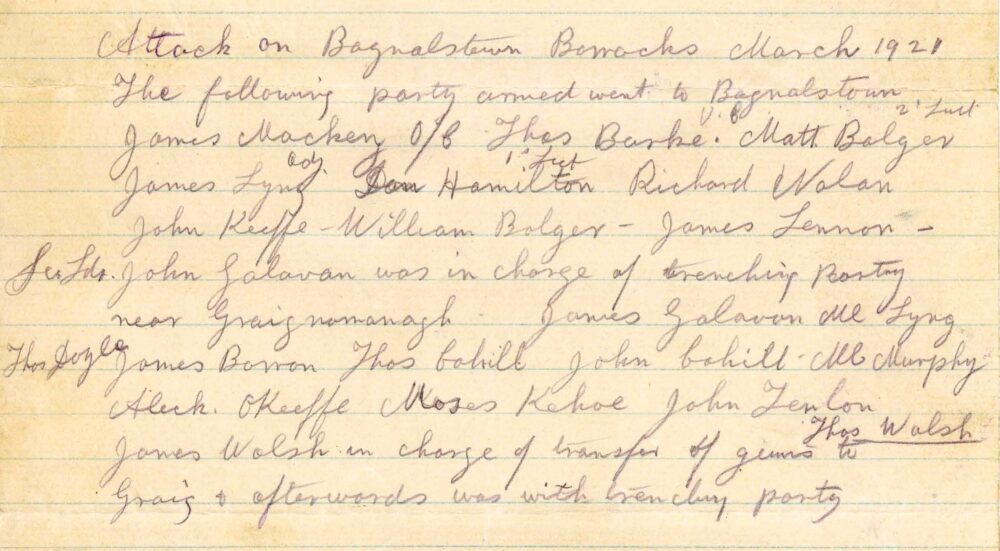 Attack on Bagnalstown Barracks March 1921
The following party armed went to Bagnalstown
V. C 2' Lieut
James Mackey O/C Thos Burke. Matt Bolger
Adj. 1st Lieut
James Lyng Dan Hamilton Richard Nolan
John Keeffe - William Bolger - James Lennon -
Sec Ldr. John Galavan was in charge of trenching Party
near Graignamanagh James Galavan Ml Lyng
Thos Doyle James Barron Thos Cahill John Cahill - Ml Murphy
Aleck. OKeeffe Moses Kehoe John Fenlon
Thos Walsh
James Walsh in charge of transfer of guns to
Graig & afterwards was with trenchy party